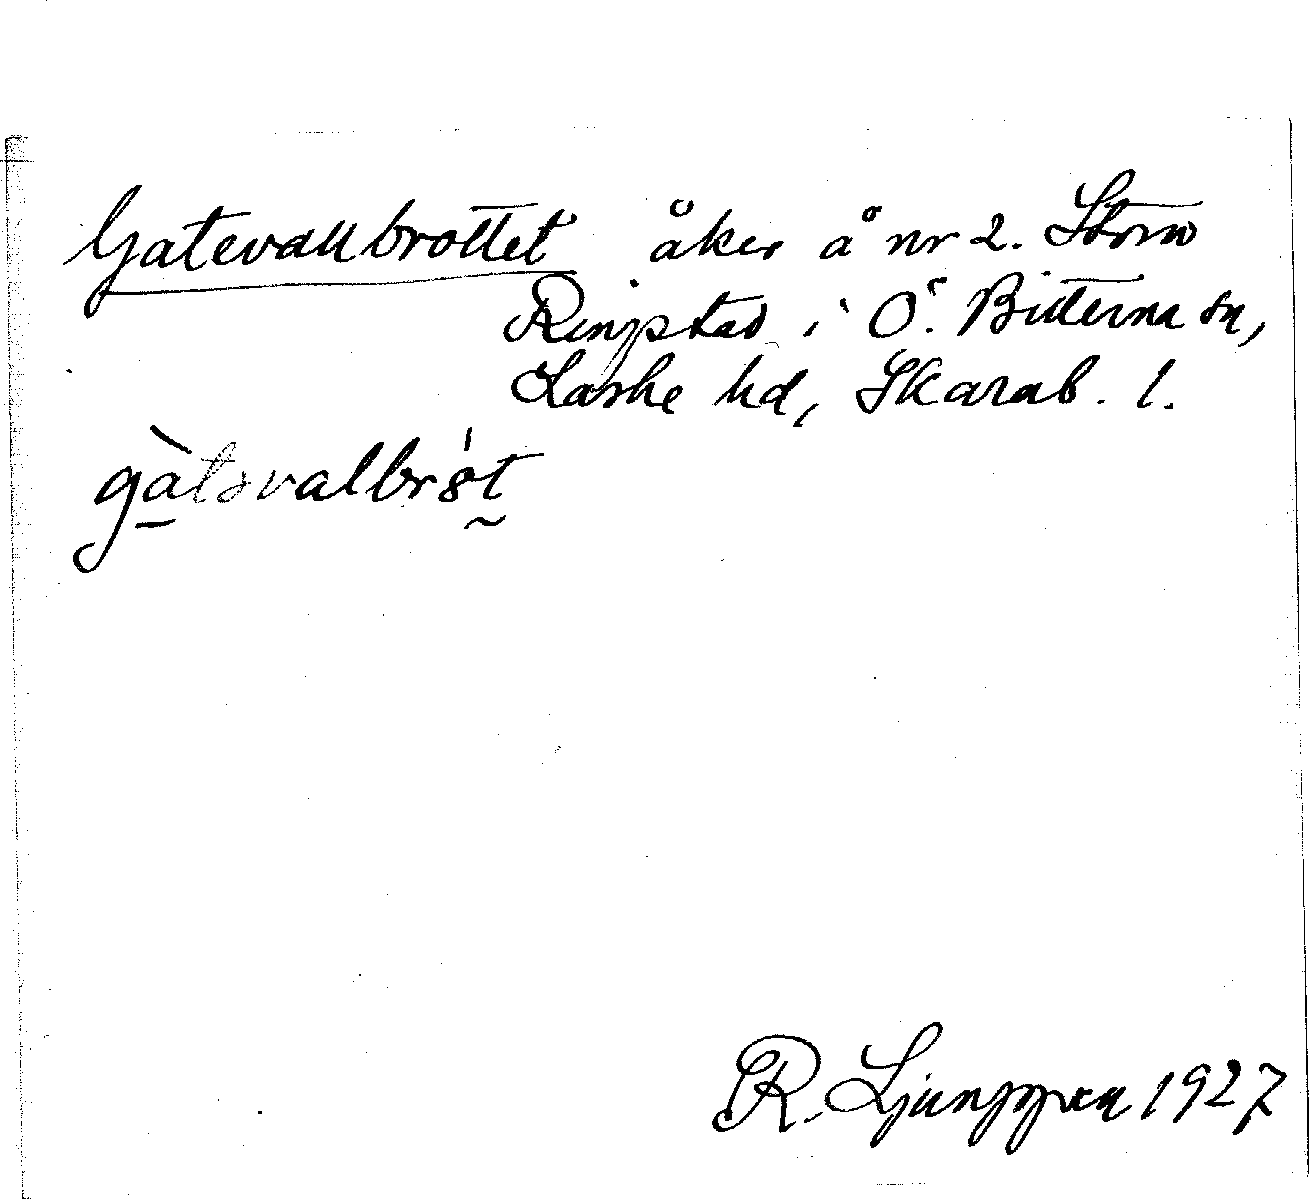 Gatevallbrottet åker å nr 2. Stora
Ringstad i Ö. Bitterna sn,
Laske hd, Skarab. l.
gàtəvalbrót
R. Ljunggren 1927